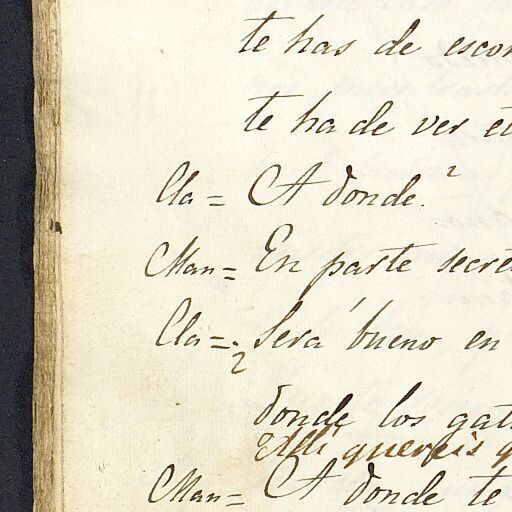 te has de escon
te ha de ver el
Cla = A donde?
Man = En parte secre
Cla = ¿Será bueno en
donde los gat
Alli quereis q
Man = A donde te